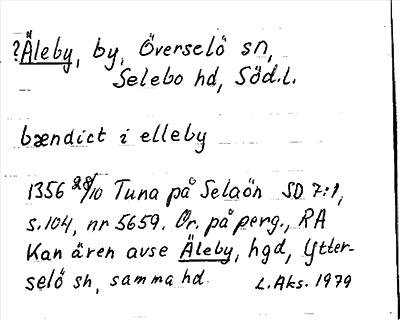 ?Äleby, by, Överselö sn,
Selebo hd, Söd.l.
bændict i elleby
1356 28/10 Tuna på Selaön SD 7:1,
s. 104, nr 5659. Or. på perg., RA
Kan även avse Äleby, hgd, Ytter-
selö sn, samma hd. L. Aks. 1979